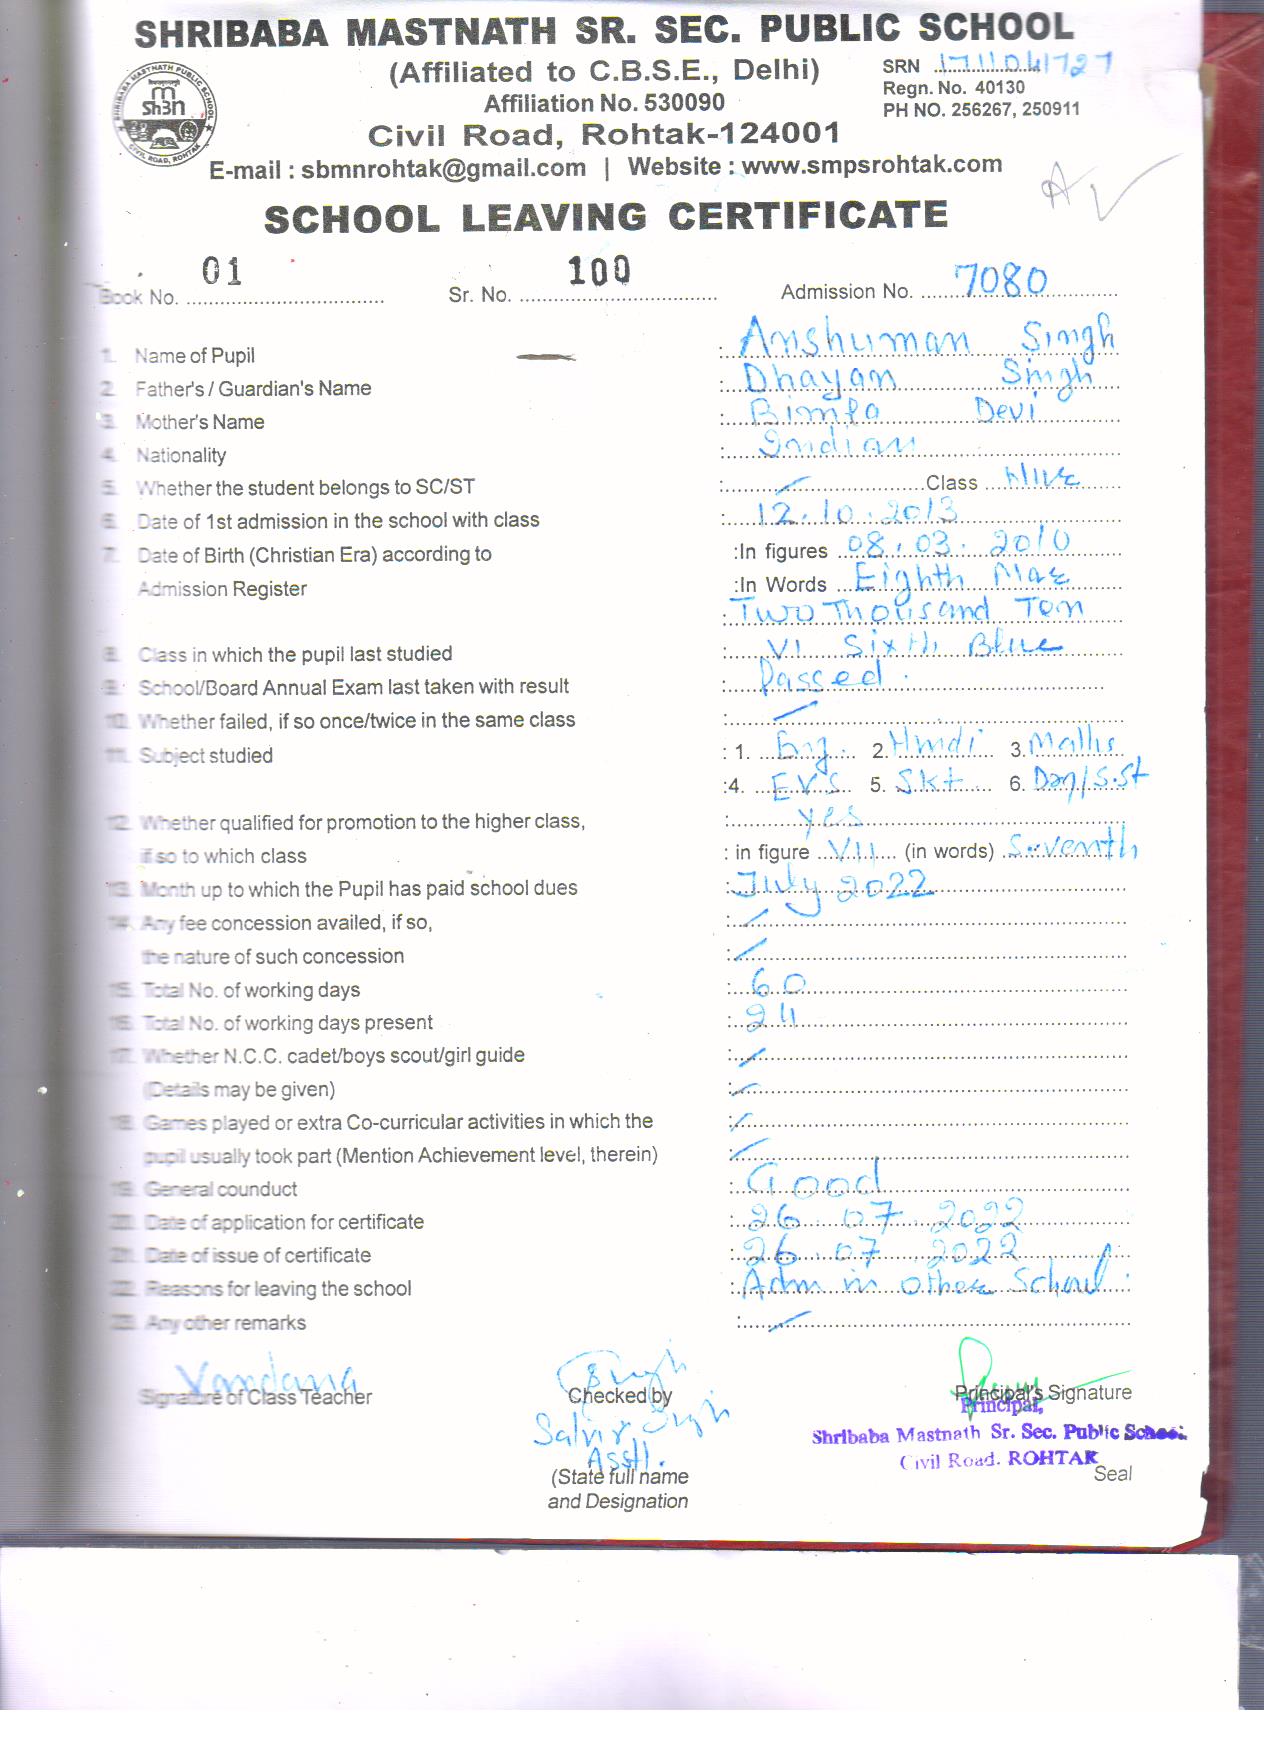 SHRIBABA MASTNATH SR. SEC. PUBLIC SCHOOL
(Affiliated to C.B.S.E., Delhi)
SRN 1711041727
Affiliation No. 530090
Regn. No. 40130
PH NO. 256267, 250911
Civil Road, Rohtak-124001
E-mail : sbmnrohtak@gmail.com | Website : www.smpsrohtak.com
SCHOOL LEAVING CERTIFICATE
Book No. 01 Sr. No. 100 Admission No. 7080
1. Name of Pupil : Anshuman Singh
2. Father's / Guardian's Name : Dhayan Singh
3. Mother's Name : Bimla Devi
4. Nationality : Indian
5. Whether the student belongs to SC/ST : Class
6. Date of 1st admission in the school with class : 12.10.2013
7. Date of Birth (Christian Era) according to :In figures 08.03.2010
Admission Register :In Words Eighth Mar
: Two Thousand Ten
8. Class in which the pupil last studied : VI Sixth Blue
9. School/Board Annual Exam last taken with result : Passed
10. Whether failed, if so once/twice in the same class :
11. Subject studied : 1. Eng. 2. Hindi 3. Maths
:4. EVS 5. Skt 6. /S.St
12. Whether qualified for promotion to the higher class, : yes
if so to which class : in figure VII (in words) Seventh
13. Month up to which the Pupil has paid school dues : July 2022
14. Any fee concession availed, if so, :
the nature of such concession :
15. Total No. of working days : 60
16. Total No. of working days present : 24
17. Whether N.C.C. cadet/boys scout/girl guide :
(Details may be given) :
18. Games played or extra Co-curricular activities in which the :
pupil usually took part (Mention Achievement level, therein) :
19. General counduct : Good
20. Date of application for certificate : 26.07.2022
21. Date of issue of certificate : 26.07.2022
22. Reasons for leaving the school : Adm in other School
23. Any other remarks :
Vandana
Signature of Class Teacher Checked by Principal's Signature
Principal,
Singh
Shribaba Mastnath Sr. Sec. Public School
Asstt.
Civil Road. ROHTAK
(State full name Seal
and Designation